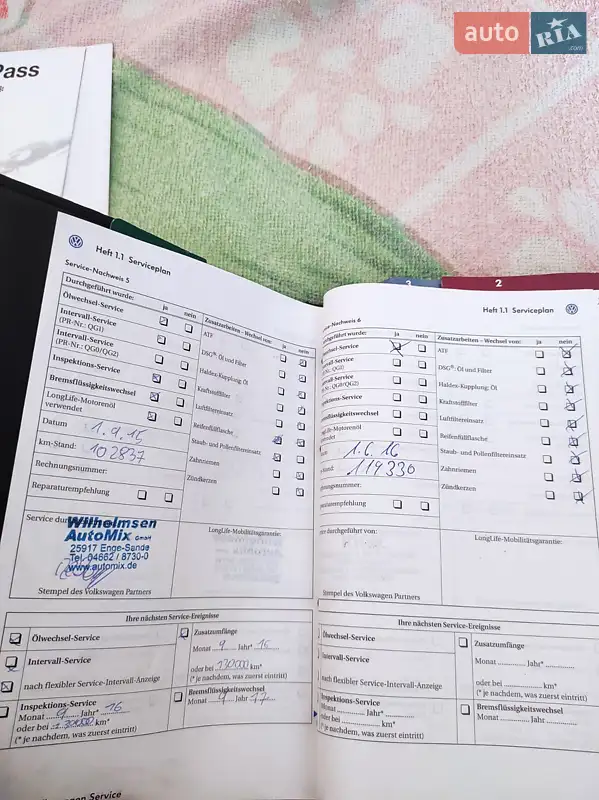 auto RIA .com
Pass
Heft 1.1 Serviceplan
Service-Nachweis 5
Durchgeführt wurde: ja nein
Ölwechsel-Service
Intervall-Service
(PR-Nr.: QG1)
Intervall-Service
(PR-Nr.: QG0/QG2)
Inspektions-Service
Bremsflüssigkeitswechsel
LongLife-Motorenöl
verwendet
Datum 1.9.15
km-Stand: 102837
Rechnungsnummer:
Reparaturempfehlung
Zusatzarbeiten - Wechsel von: ja nein
ATF
DSG®: Öl und Filter
Haldex-Kupplung: Öl
Kraftstofffilter
Luftfiltereinsatz
Reifenfüllflasche
Staub- und Pollenfiltereinsatz
Zahnriemen
Zündkerzen
Service durchgeführt von:
Wilhelmsen
AutoMix GmbH
25917 Enge-Sande
Tel. 04662 / 8730-0
www.automix.de
Stempel des Volkswagen Partners
LongLife-Mobilitätsgarantie:
Ihre nächsten Service-Ereignisse
Ölwechsel-Service
Intervall-Service
nach flexibler Service-Intervall-Anzeige
Inspektions-Service
Monat 9 Jahr* 16
oder bei km*
(* je nachdem, was zuerst eintritt)
Zusatzumfänge
Monat 9 Jahr* 16
oder bei 130000 km*
(* je nachdem, was zuerst eintritt)
Bremsflüssigkeitswechsel
Monat 9 Jahr 17
3
2
Heft 1.1 Serviceplan
Service-Nachweis 6
durchgeführt wurde: ja nein
-Service
-Service
QG1)
-Service
QG0/QG2)
-Service
flüssigkeitswechsel
Life-Motorenöl
1.6.16
Stand: 119330
nungsnummer:
raturempfehlung
Zusatzarbeiten - Wechsel von: ja nein
ATF
DSG®: Öl und Filter
Haldex-Kupplung: Öl
Kraftstofffilter
Luftfiltereinsatz
Reifenfüllflasche
Staub- und Pollenfiltereinsatz
Zahnriemen
Zündkerzen
durchgeführt von:
LongLife-Mobilitätsgarantie:
Stempel des Volkswagen Partners
Ihre nächsten Service-Ereignisse
Ölwechsel-Service
Intervall-Service
nach flexibler Service-Intervall-Anzeige
Inspektions-Service
Monat Jahr*
oder bei km*
(* je nachdem, was zuerst eintritt)
Zusatzumfänge
Monat Jahr*
oder bei km*
(* je nachdem, was zuerst eintritt)
Bremsflüssigkeitswechsel
Monat Jahr
Service